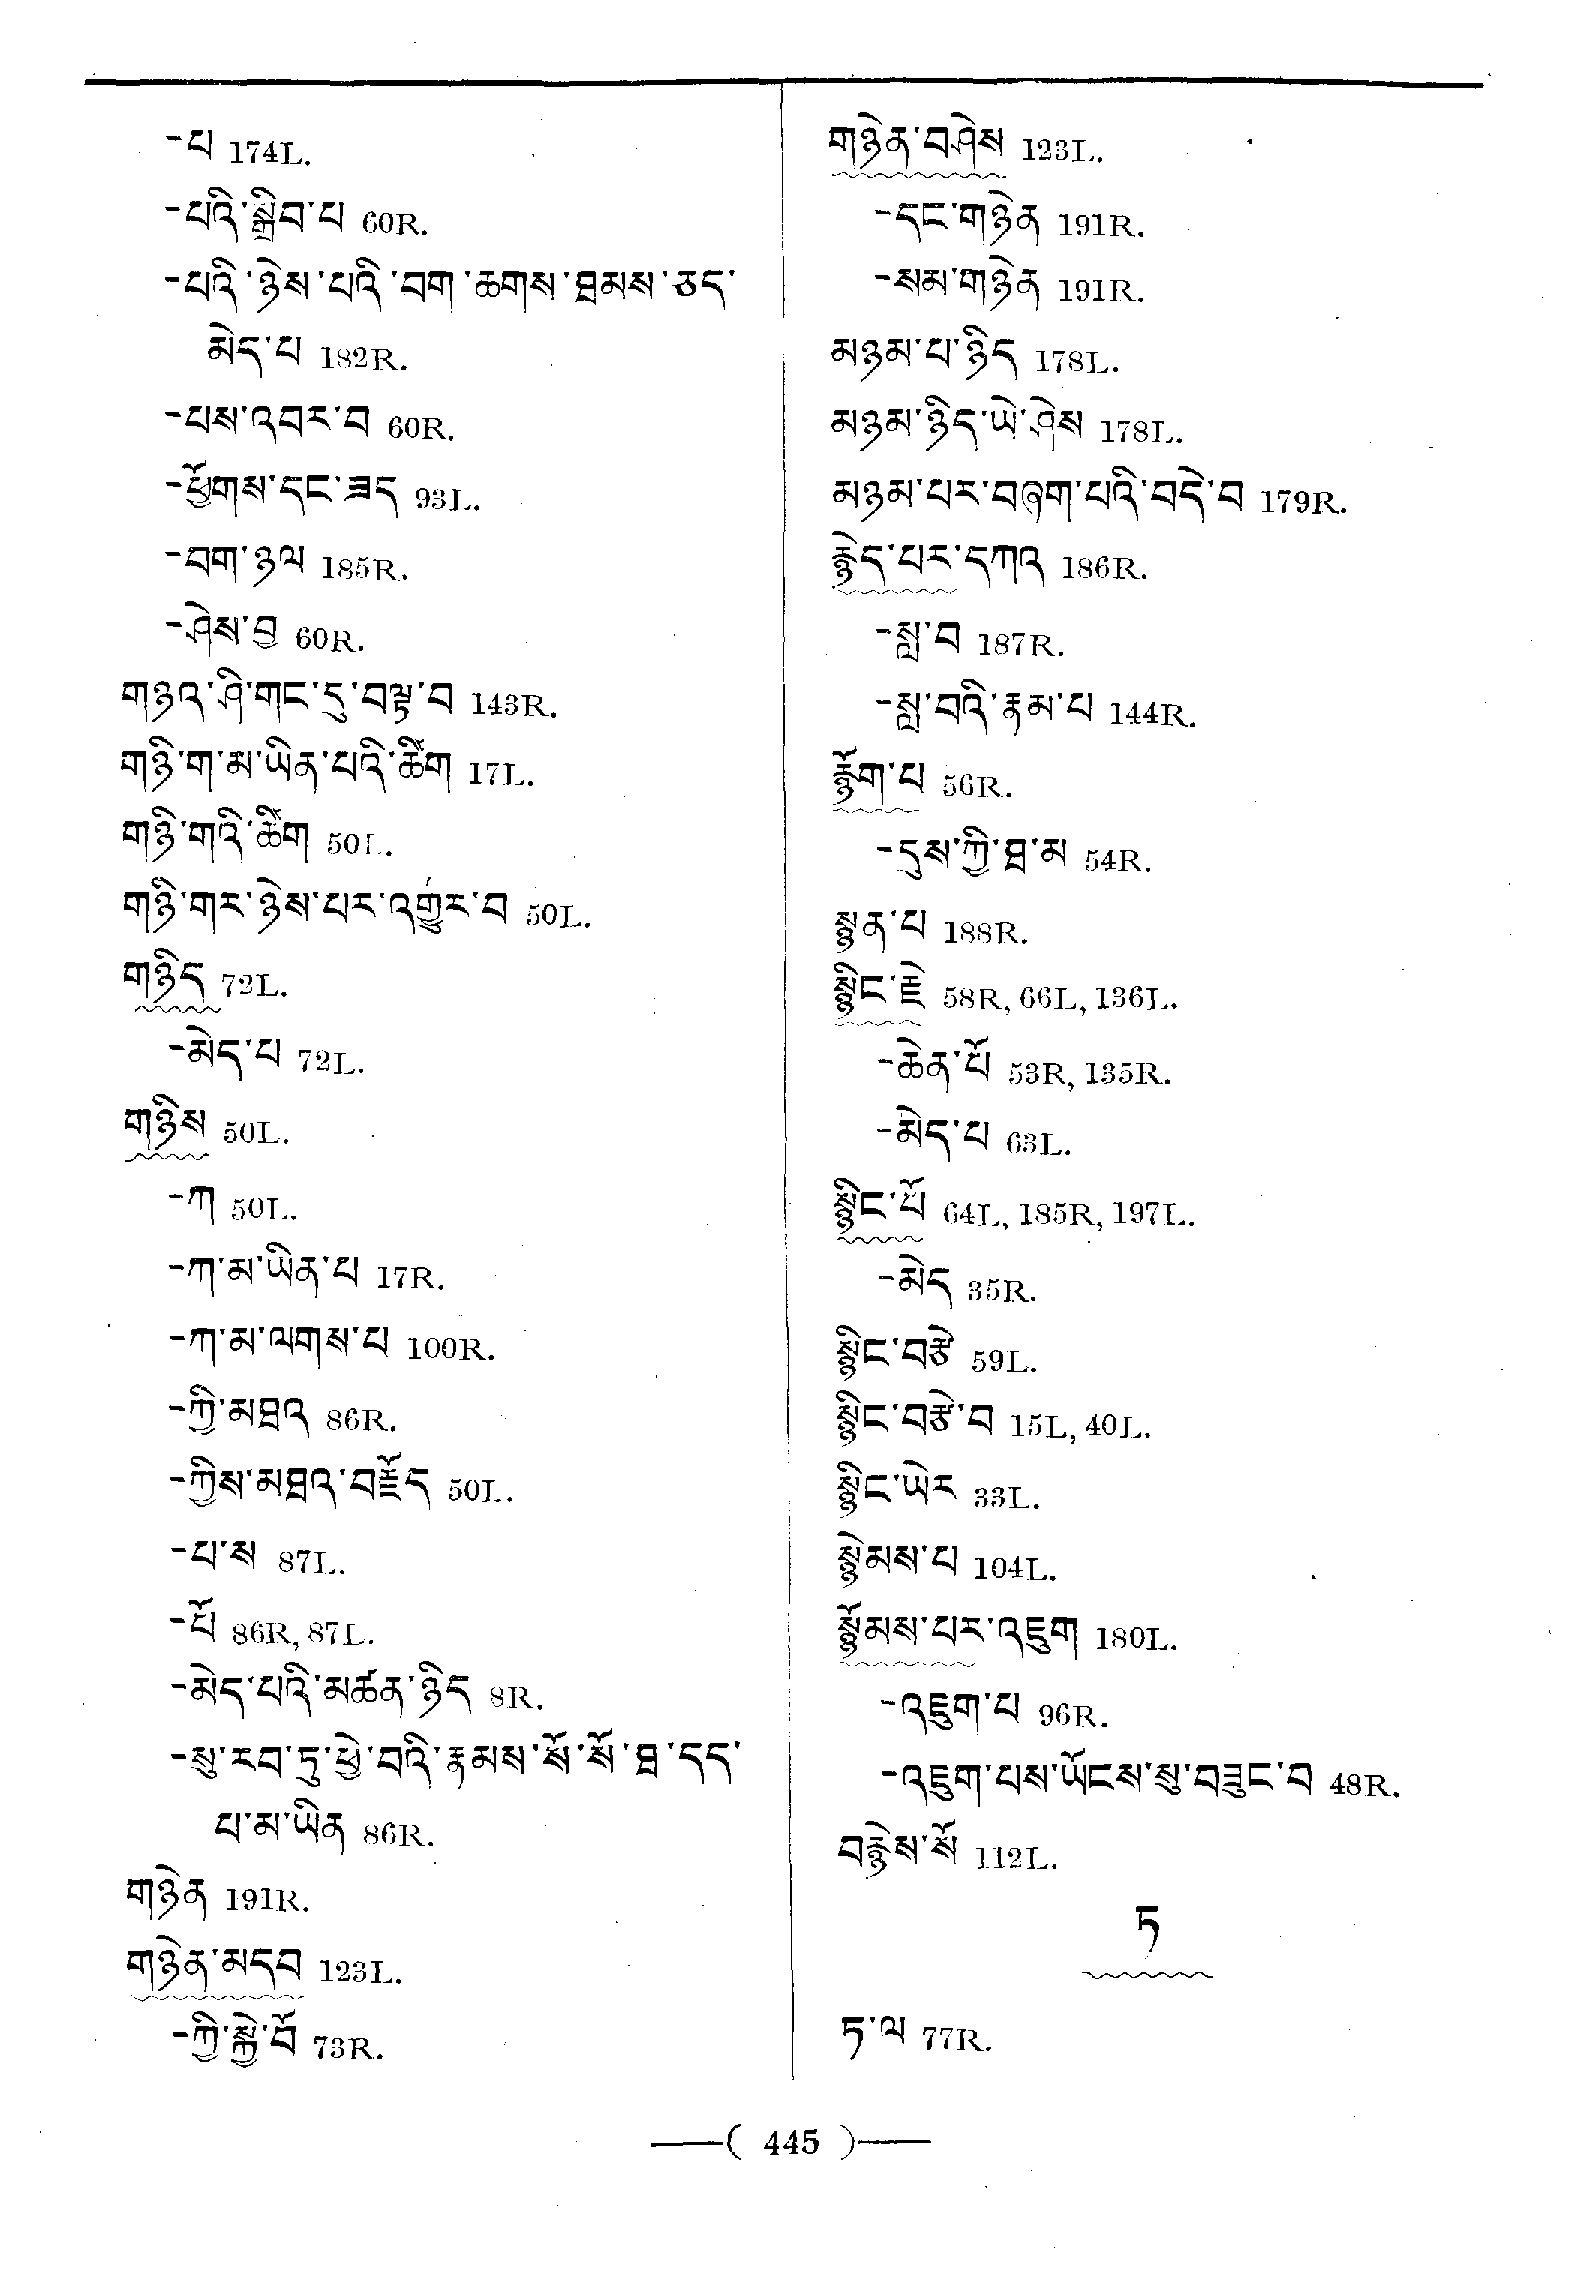 -པ 174L.
-པའི་སྒྲིབ་པ 60R.
-པའི་ཉེས་པའི་བག་ཆགས་ཐམས་ཅད་
མེད་པ 182R.
-པས་འབར་བ 60R.
-ཕྱོགས་དང་ཟད 93L.
-བག་ཉལ 185R.
-ཤེས་བྱ 60R.
གཉའ་ཤི་གང་དུ་བལྟ་བ 143R.
གཉི་ག་མ་ཡིན་པའི་ཚིག 17L.
གཉི་གའི་ཚིག 50L.
གཉི་གར་ཉེས་པར་འགྱུར་བ 50L.
གཉིད 72L.
-མེད་པ 72L.
གཉིས 50L.
-ཀ 50L.
-ཀ་མ་ཡིན་པ 17R.
-ཀ་མ་ལགས་པ 100R.
-ཀྱི་མཐའ 86R.
-ཀྱིས་མཐའ་བརྗོད 50L.
-པ་ས 87L.
-པོ 86R, 87L.
-མེད་པའི་མཚན་ཉིད 8R.
-སུ་རབ་ཏུ་ཕྱེ་བའི་རྣམས་སོ་སོ་ཐ་དད་
པ་མ་ཡིན 86R.
གཉེན 191R.
གཉེན་མདབ 123L.
-ཀྱི་སྐྱེ་བོ 73R.
གཉེན་བཤེས 123L.
-དང་གཉེན 191R.
-སམ་གཉེན 191R.
མཉམ་པ་ཉིད 178L.
མཉམ་ཉིད་ཡེ་ཤེས 178L.
མཉམ་པར་བཞག་པའི་བདེ་བ 179R.
རྙེད་པར་དཀའ 186R.
-སླ་བ 187R.
-སླ་བའི་རྣམ་པ 144R.
རྙོག་པ 56R.
-དུས་ཀྱི་ཐ་མ 54R.
སྙན་པ 188R.
སྙིང་རྗེ 58R, 66L, 136L.
-ཆེན་པོ 53R, 135R.
-མེད་པ 63L.
སྙིང་པོ 64L, 185R, 197L.
-མེད 35R.
སྙིང་བརྩེ 59L.
སྙིང་བརྩེ་བ 15L, 40L.
སྙིང་ཡེར 33L.
སྙེམས་པ 104L.
སྙོམས་པར་འཇུག 180L.
-འཇུག་པ 96R.
-འཇུག་པས་ཡོངས་སུ་བཟུང་བ 48R.
བརྙེས་སོ 112L.
ཏ
ཏ་ལ 77R.
( 445 )